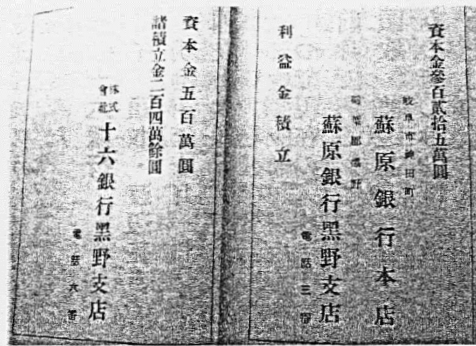 資本金參百貳拾五萬圓
岐阜市神田町
蘇原銀行本店
稻葉郡黑野
蘇原銀行黑野支店
電話三番
利益金積立
資本金五百萬圓
諸積立金二百四萬餘圓
株式會社十六銀行黑野支店
電話六番